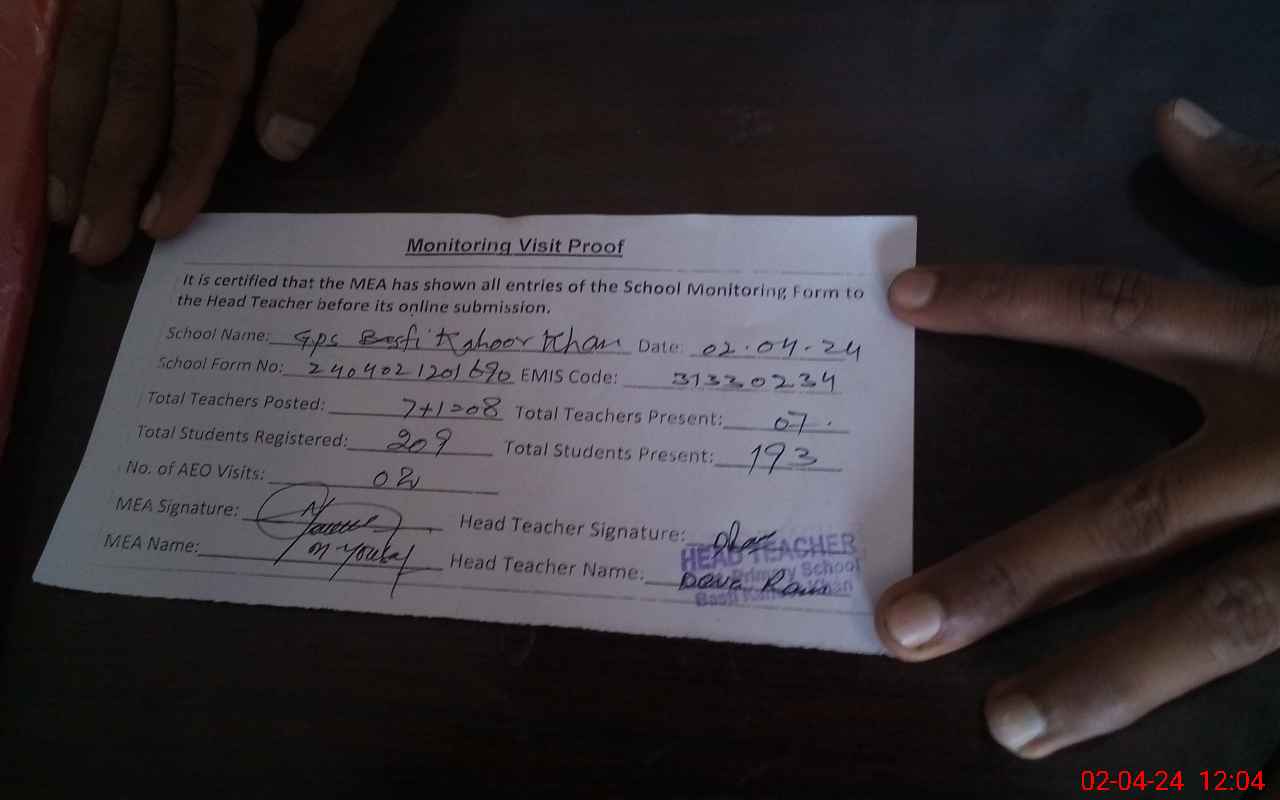 Monitoring Visit Proof
It is certified that the MEA has shown all entries of the School Monitoring Form to
the Head Teacher before its online submission.
School Name: GPS Basti Kahoor Khan Date: 02.04.24
School Form No: 2404021201690 EMIS Code: 31330234
Total Teachers Posted: 7+1=08 Total Teachers Present: 07.
Total Students Registered: 209 Total Students Present: 193
No. of AEO Visits: 02
MEA Signature: Head Teacher Signature:
HEAD TEACHER
MEA Name: M Yousaf Head Teacher Name: Deva Ram
Primary School
Basti Khan
02-04-24 12:04